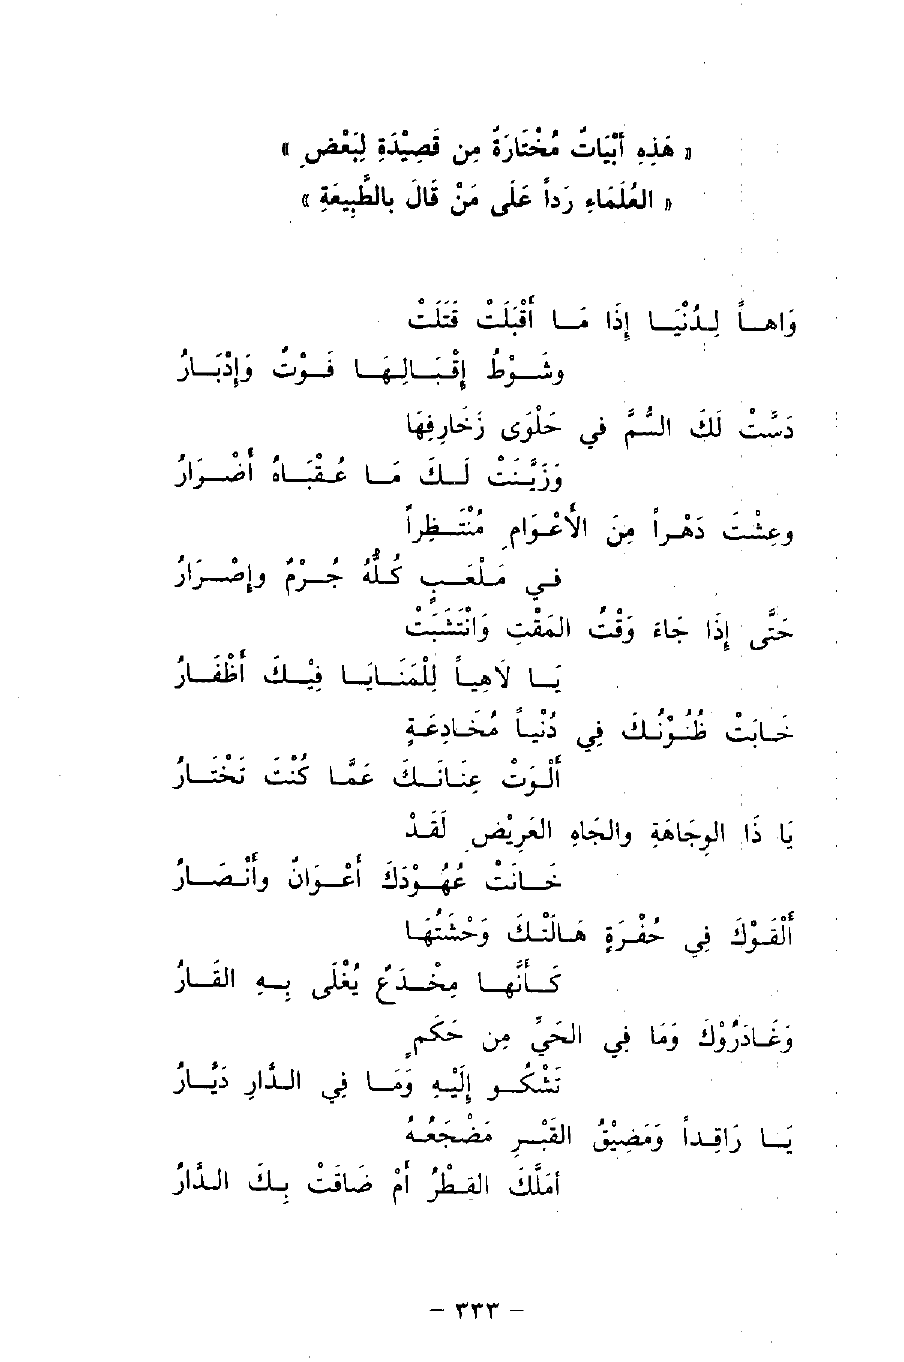 « هَذِهِ أَبْيَاتٌ مُخْتَارَةٌ مِن قَصِيْدَةٍ لِبَعْضِ »
« العُلَمَاءِ رَداً عَلَى مَنْ قَالَ بِالطَّبِيعَةِ »
وَاهاً لِدُنْيَا إِذَا مَا أَقْبَلَتْ قَتَلَتْ
وشَوْطُ إِقْبَالِهَا فَوْتٌ وَإِدْبَارُ
دَسَّتْ لَكَ السُّمَّ في حَلْوَى زَخَارِفِهَا
وَزَيَّنَتْ لَكَ مَا عُقْبَاهُ أَضْرَارُ
وعِشْتَ دَهْراً مِنَ الأَعْوَامِ مُنْتَظِراً
في مَلْعَبٍ كُلُّهُ جُرْمٌ وإصْرَارُ
حَتَّى إِذَا جَاءَ وَقْتُ المَقْتِ وَانْتَشَبَتْ
يَا لَاهِياً لِلْمَنَايَا فِيْكَ أَظْفَارُ
خَابَتْ ظُنُوْنُكَ فِي دُنْياً مُخَادِعَةٍ
أَلْوَتْ عِنَانَكَ عَمَّا كُنْتَ تَخْتَارُ
يَا ذَا الوِجَاهَةِ والجَاهِ العَرِيْضِ لَقَدْ
خَانَتْ عُهُوْدَكَ أَعْوَانٌ وأَنْصَارُ
أَلْقَوْكَ فِي حُفْرَةٍ هَالَتْكَ وَحْشَتُهَا
كَأَنَّهَا مِخْدَعٌ يُغْلَى بِهِ القَارُ
وَغَادَرُوْكَ وَمَا فِي الحَيِّ مِن حَكَمٍ
تَشْكُو إِلَيْهِ وَمَا فِي الدَّارِ دَيَّارُ
يَا رَاقِداً وَمَضِيْقُ القَبْرِ مَضْجَعُهُ
أمَلَّكَ القِطْرُ أَمْ ضَاقَتْ بِكَ الدَّارُ
- ٣٣٣ -